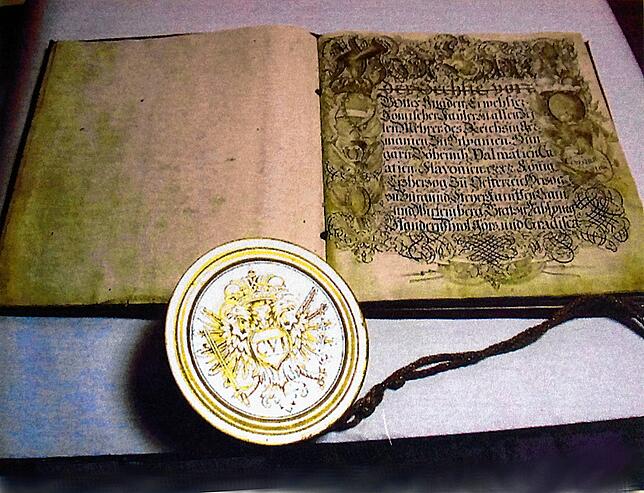 Der Sechste von
Gottes Gnaden Erwehlter
Römischer Kaÿser zu allen Zei
ten Mehrer des Reichs in Ger
manien, Zu Hispanien, Hun
garn, Böheimb, Dalmatien, Cro
atien, Slavonien, König,
Erzherzog Zu Österreich, Herzog
zu Burgund, Steÿer,
und Wirtemberg, Graf zu
Flandern, Tyrol, Görz und Gradisca
VI